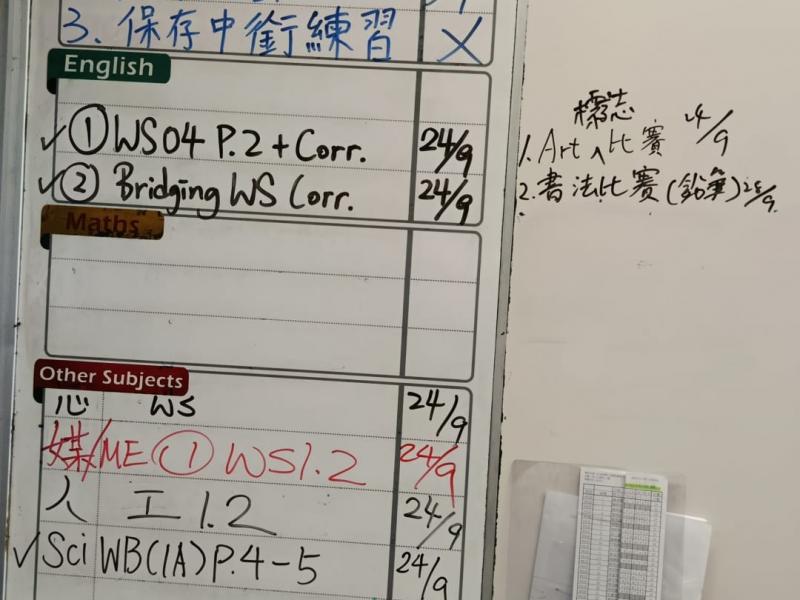 3. 保存中銜練習 X
English
✓ ① WS04 P.2 + Corr. 24/9
✓ ② Bridging WS Corr. 24/9
Maths
Other Subjects
心 WS 24/9
媒/ME ① WS1.2 24/9
人 工1.2 24/9
✓ Sci WB(1A) P.4-5 24/9
標志
1. Art ^ 比賽 24/9
2. 書法比賽(鉛筆) 25/9